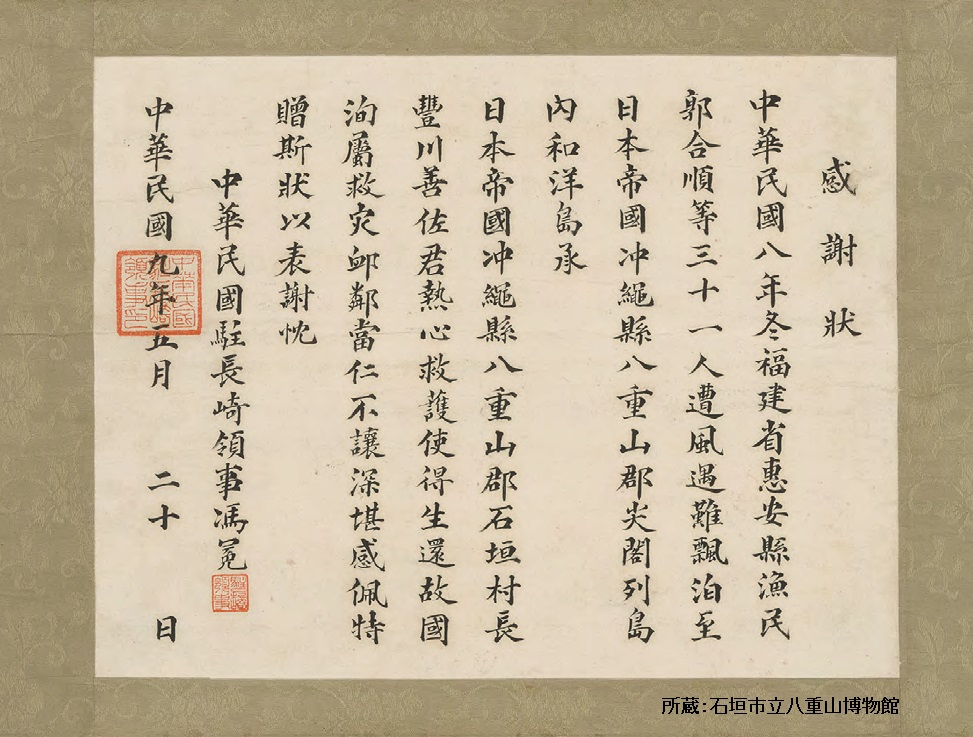 感謝狀
中華民國八年冬福建省惠安縣漁民
郭合順等三十一人遭風遇難飄泊至
日本帝國冲繩縣八重山郡尖閣列島
內和洋島承
日本帝國冲繩縣八重山郡石垣村長
豐川善佐君熱心救護使得生還故國
洵屬救灾卹鄰當仁不讓深堪感佩特
贈斯狀以表謝忱
中華民國駐長崎領事馮冕
中華民國九年五月二十日
所蔵：石垣市立八重山博物館